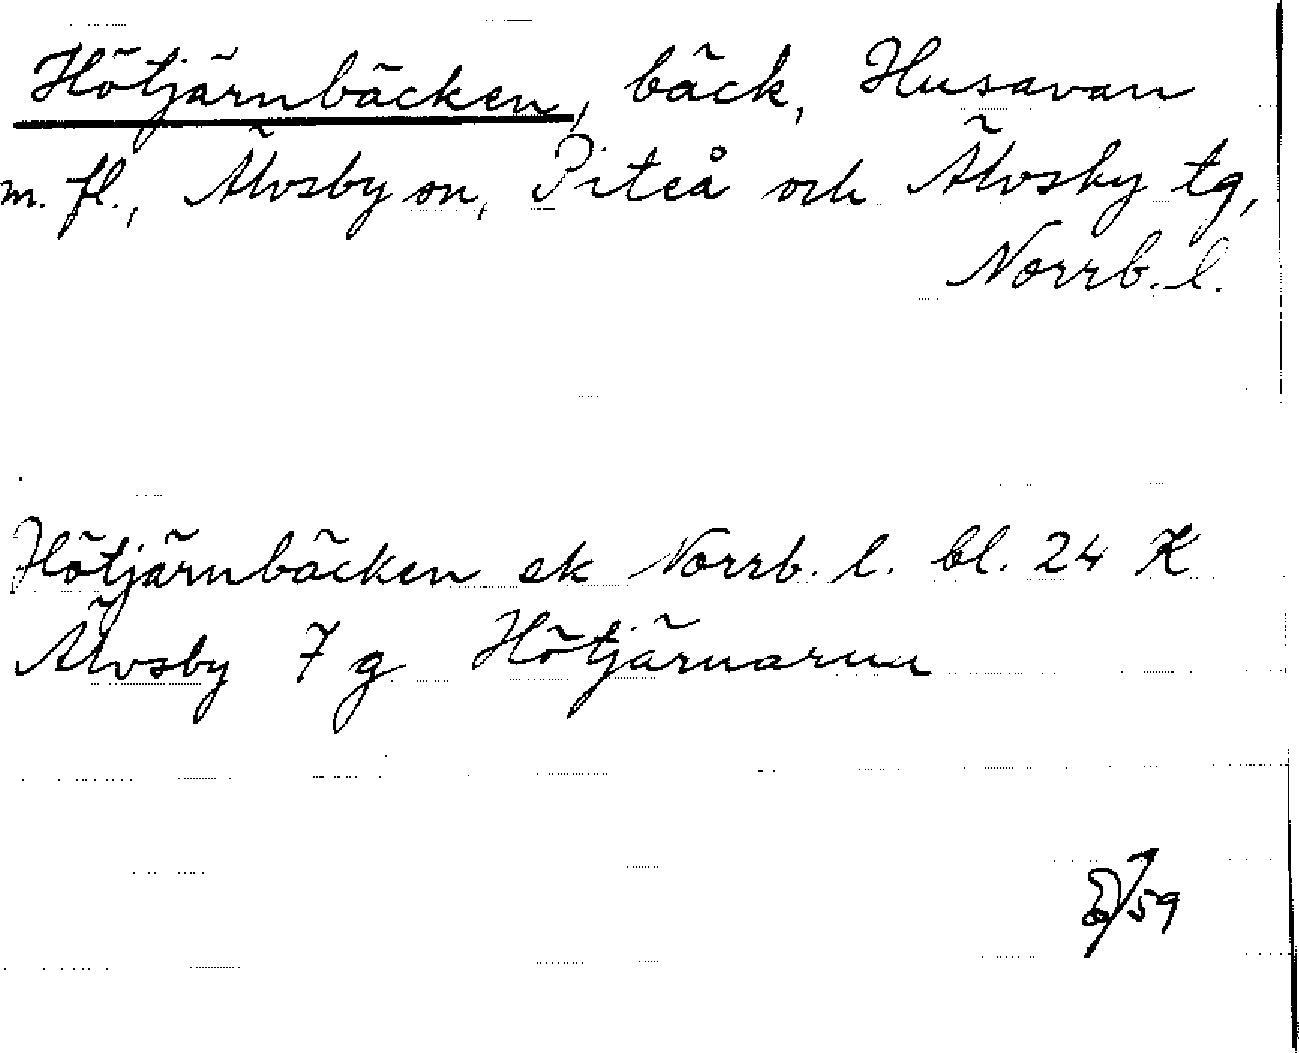 Hötjärnbäcken, bäck, Husavan
m. fl., Älvsby sn, Piteå och Älvsby tg,
Norrb. l.
Hötjärnbäcken ek Norrb. l. bl. 24 X
Älvsby 7 g Hötjärnarna
/59